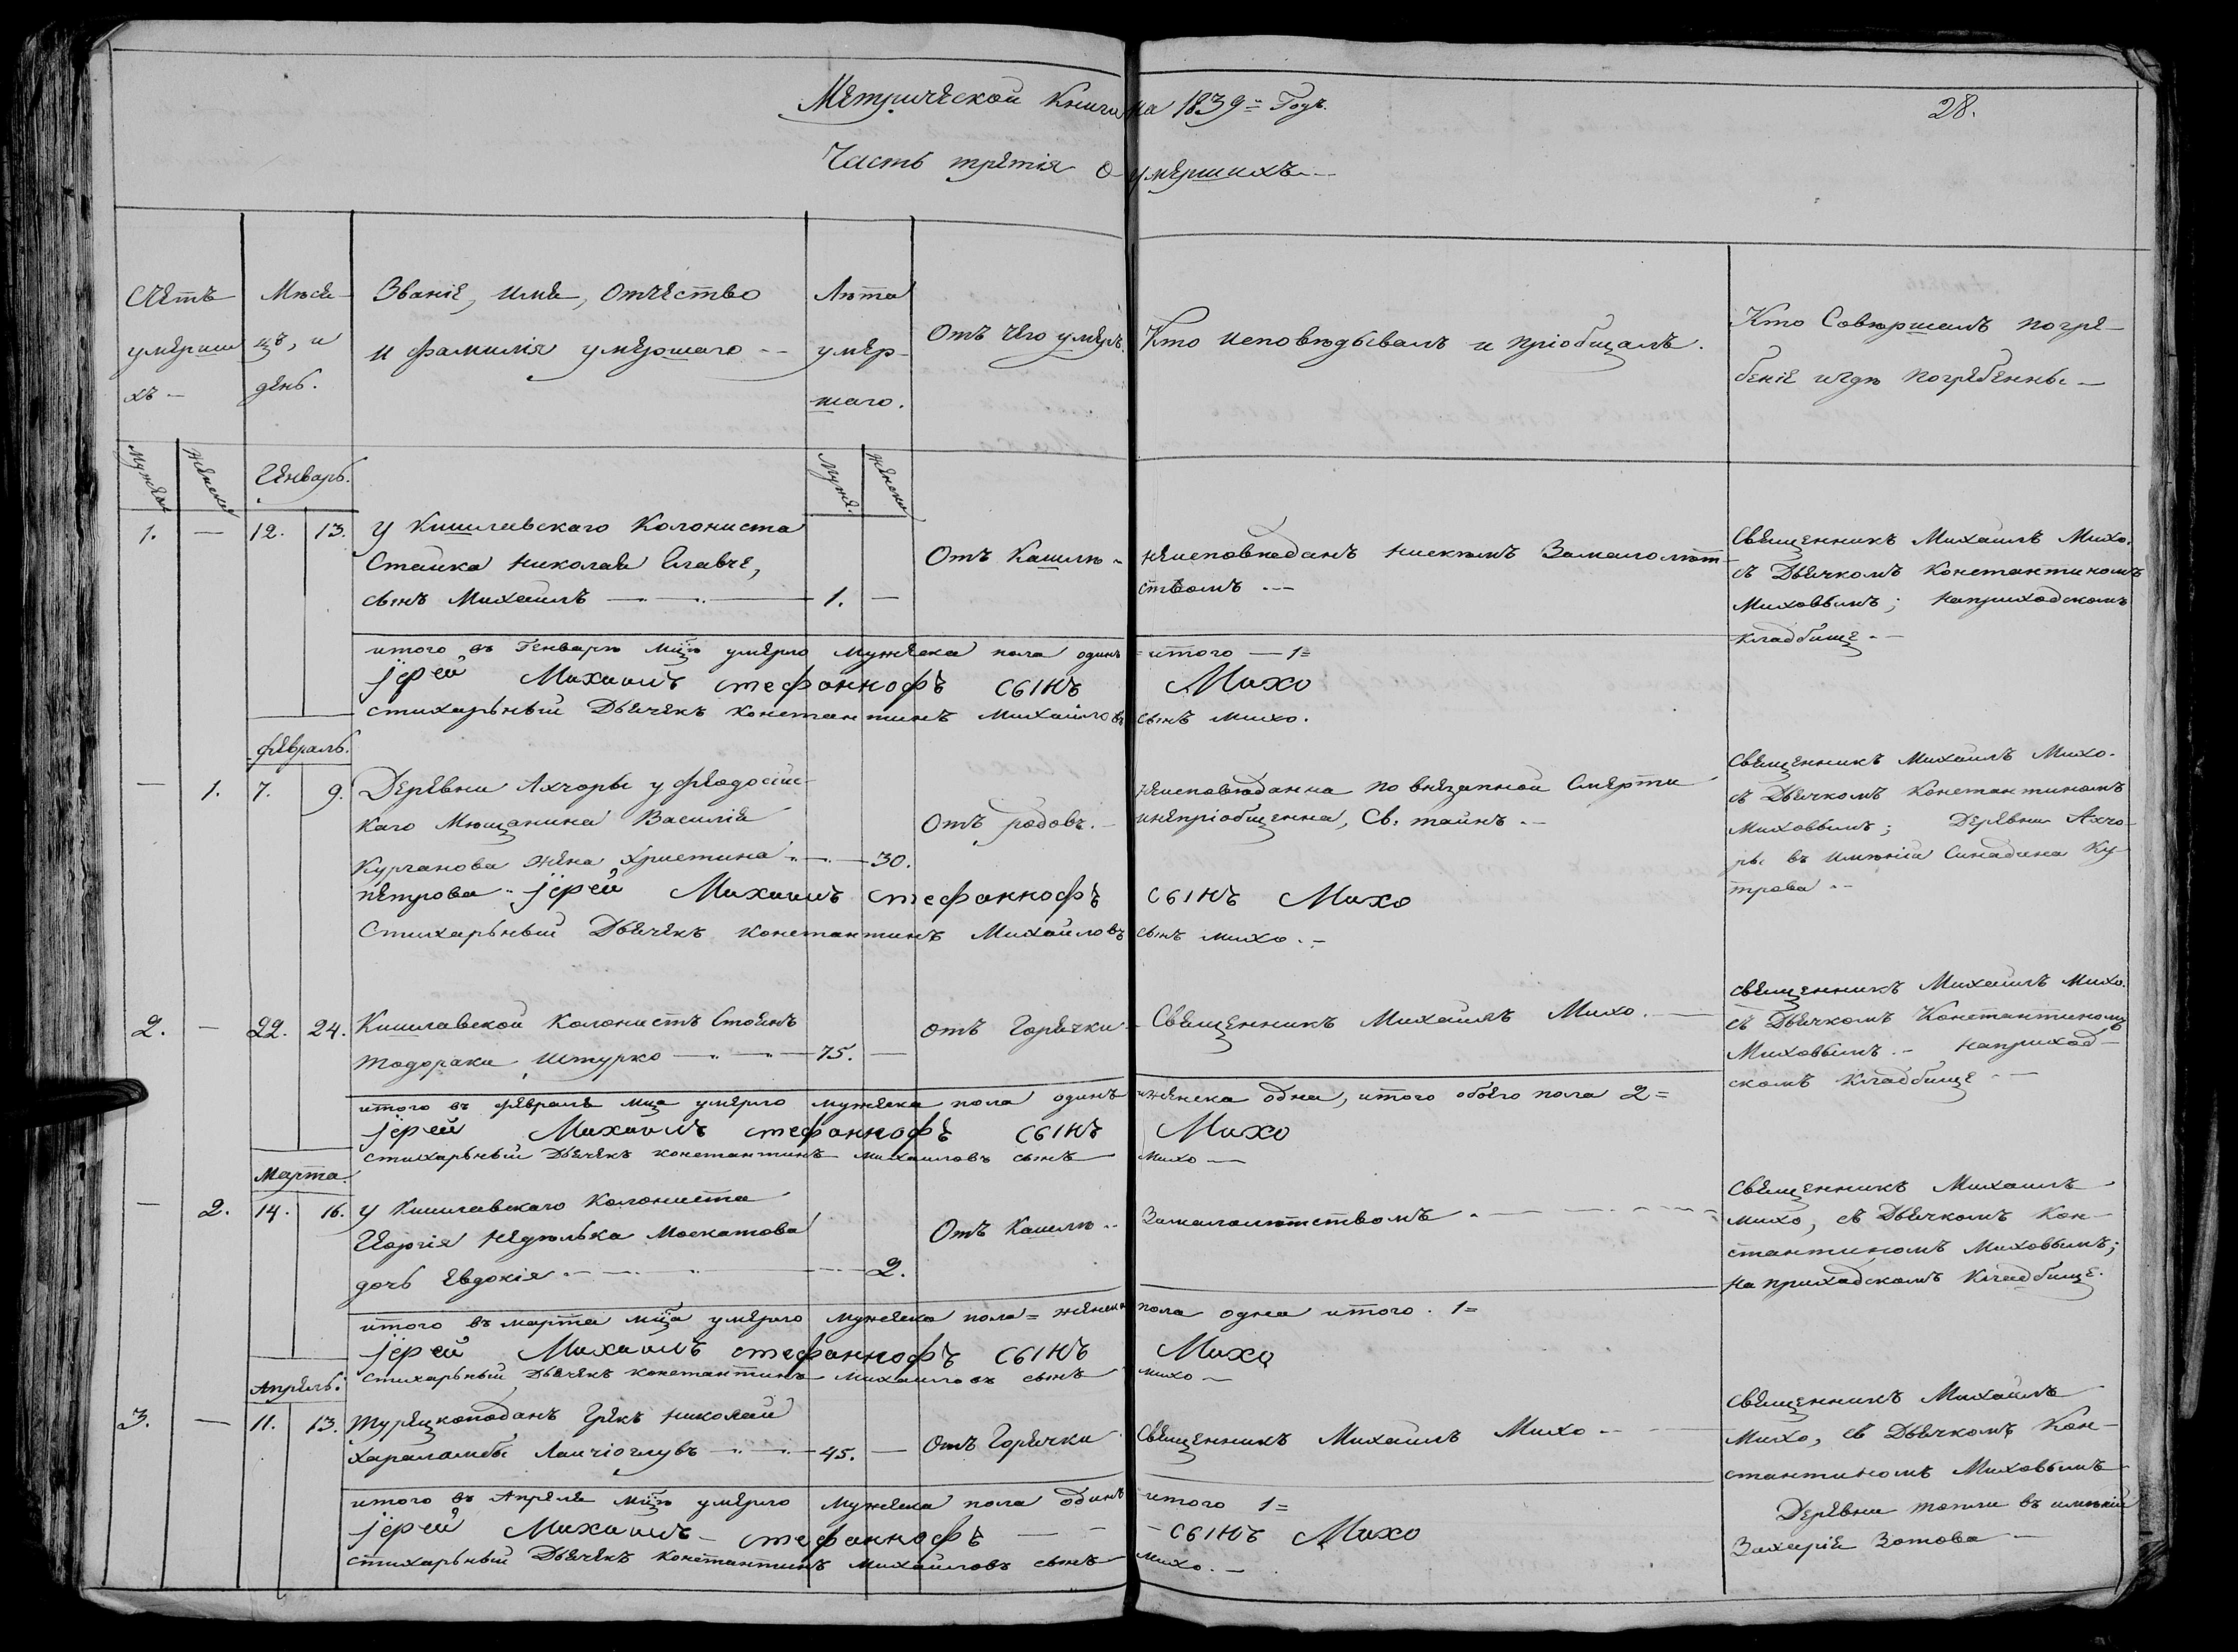 Метрической книги на 1839= Годъ.
28.
Часть третія о умершихъ.—
Счетъ умерши хъ —
Месе- цъ, и день.
Званіе, имя, отчество и фамилія умершаго —
Лѣта умер- шаго.
Отъ чего умеръ.
Кто исповѣдывалъ и пріобщалъ.
Кто Совершалъ погре- беніе игдѣ погребенны —
Мужеска
Женска
Генварь.
Муже.
Женска
1. — 12. 13.
У Кишлавскаго Колониста
Стайка Николая Славче,
сынъ Михаилъ — 1. —
Отъ Кашлю
неисповѣданъ ниекомъ Замалолѣт-
ствомъ —
Священникъ Михаилъ Михо.
съ Дьячкомъ Константиномъ
Миховымъ; наприходскомъ
кладбище —
итого въ Генварѣ мцѣ умерло мужеска пола одинъ = итого — 1=
јерей Михаилъ стефанкофъ сынъ Михо
стихарьный Дьячекъ Константинъ Михайловъ сынъ Михо.
февраль.
— 1. 7. 9.
Деревни Ахчоры у феодосій-
каго Мющанина Василія
Курганова жена Христина — 30.
петрова
Отъ родовъ. —
неисповѣданна по внезапной Смерти
инепріобщенна, Св: таинъ. —
Священникъ Михаилъ Михо.
съ Дьячкомъ Константиномъ
Миховымъ; Деревни Ахчо-
ры въ имѣніи Синадина Ку-
трова —
јерей Михаилъ стефанкофъ сынъ Михо
Стихарьный Дьячекъ Константинъ Михайловъ сынъ михо. —
2. — 22. 24.
Кишлавской Колонистъ Стоянъ
Тодораки Штурко — 75. —
отъ Горячки
Священникъ Михаилъ Михо. —
священникъ Михаилъ Михо.
съ Дьячкомъ Константиномъ
Миховымъ. — наприход-
скомъ кладбище —
итого въ февралѣ мца умерло мужеска пола одинъ иженска одна, итого обоего пола 2=
јерей Михаилъ стефанкофъ сынъ Михо
стихарьный Дьячекъ константинъ михаиловъ сынъ михо —
Марта
— 2. 14. 16.
У Кишлавскаго Колониста
Георгія Недѣлька Москатова
дочь Евдокія — 2.
Отъ Кашлю
Замалолѣтствомъ
Священникъ Михаилъ
михо, съ Дьячкомъ Кон-
стантиномъ Миховымъ;
на приходскомъ Кладбище.
итого въ марта мца умерло мужеска пола = женска пола одна итого. 1=
јерей Михаилъ стефанкофъ сынъ Михо
стихарьный Дьячекъ константинъ михаиловъ сынъ михо —
Апрель.
3. — 11. 13.
Турецкоподанъ Грекъ Николай
Хараламбы — 45. —
Отъ Горячки
Священникъ Михаилъ Михо —
Священникъ Михаилъ
Михо, съ Дьячкомъ Кон-
стантиномъ Миховымъ
Деревни въ имѣніи
Захарія Зотова —
итого въ Апреля мцѣ умерло мужеска пола одинъ итого 1=
јерей Михаилъ — стефанкофъ — — сынъ Михо
стихарьный Дьячекъ Константинъ Михайловъ сынъ михо. —